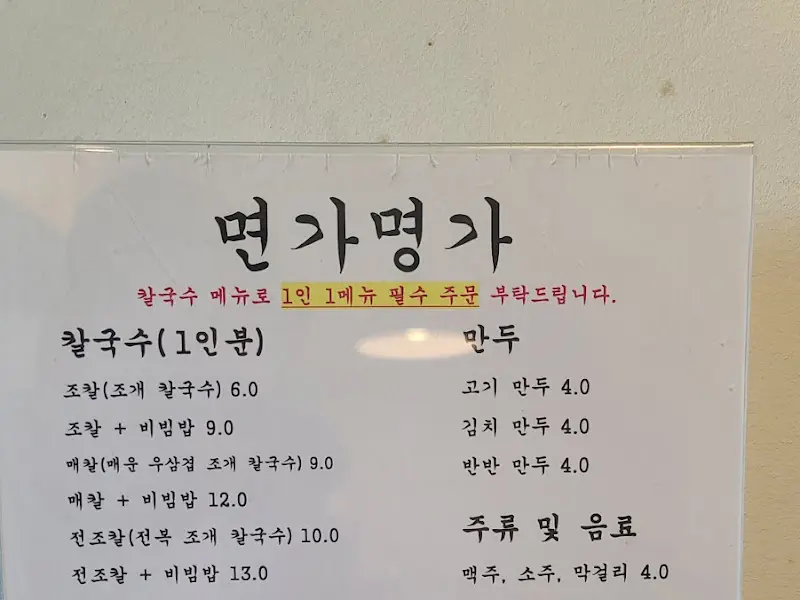 면가명가
칼국수 메뉴로 1인 1메뉴 필수 주문 부탁드립니다.
칼국수(1인분)
조칼(조개 칼국수) 6.0
조칼 + 비빔밥 9.0
매칼(매운 우삼겹 조개 칼국수) 9.0
매칼 + 비빔밥 12.0
전조칼(전복 조개 칼국수) 10.0
전조칼 + 비빔밥 13.0
만두
고기 만두 4.0
김치 만두 4.0
반반 만두 4.0
주류 및 음료
맥주, 소주, 막걸리 4.0